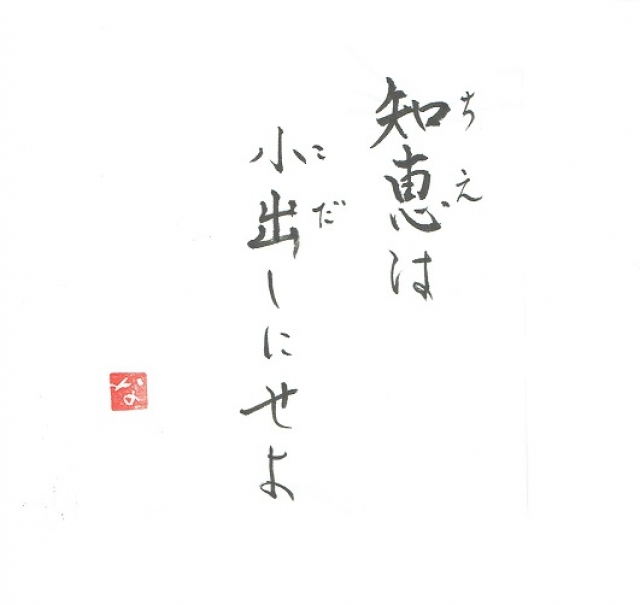 知恵は
ちえ
小出しにせよ
こだ
な